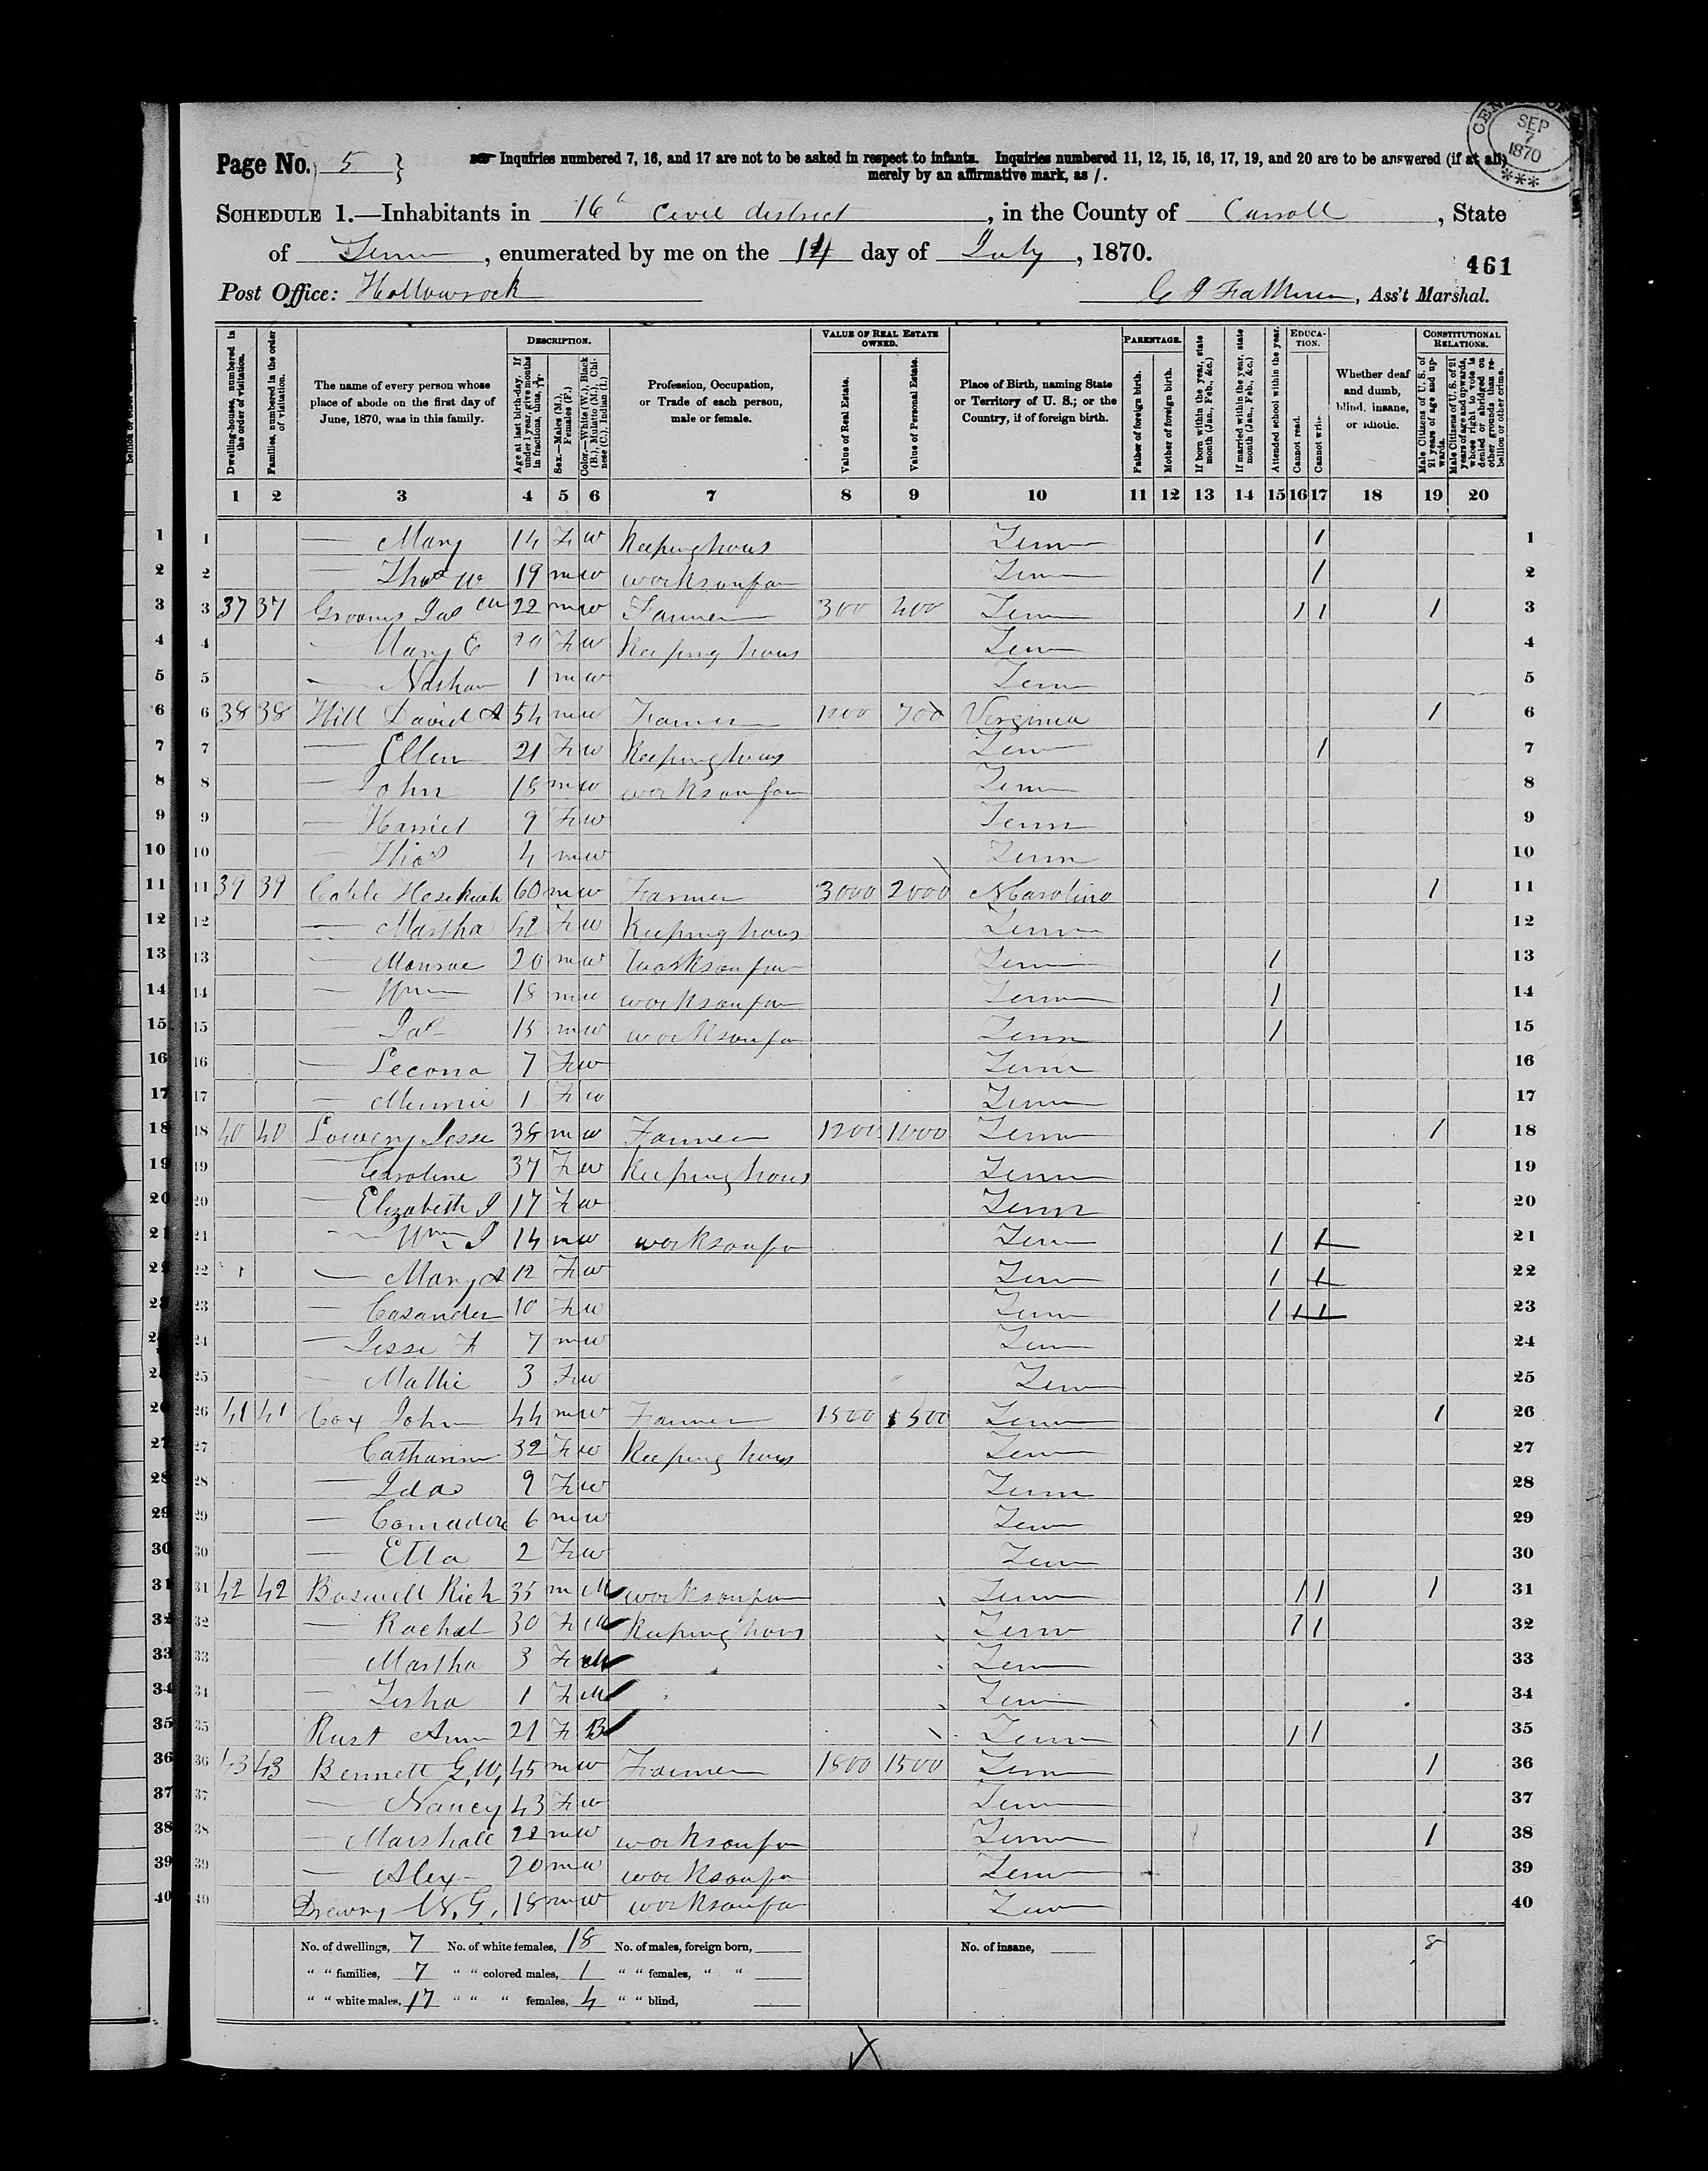 CENSUS OFFICE SEP 7 1870 ***
Page No. 5 } Inquiries numbered 7, 16, and 17 are not to be asked in respect to infants. Inquiries numbered 11, 12, 15, 16, 17, 19, and 20 are to be answered (if at all)
merely by an affirmative mark, as /.
SCHEDULE 1.—Inhabitants in 16th Civil district, in the County of Carroll, State
of Tenn, enumerated by me on the 14 day of July, 1870.
461
Post Office: Hollowrock , Ass't Marshal.
DESCRIPTION. VALUE OF REAL ESTATE OWNED. PARENTAGE. EDUCATION. CONSTITUTIONAL RELATIONS.
Dwelling-houses, numbered in the order of visitation.
Families, numbered in the order of visitation.
The name of every person whose place of abode on the first day of June, 1870, was in this family.
Age at last birth-day. If under 1 year, give months in fractions, thus, 3/12.
Sex.—Males (M.), Females (F.)
Color.—White (W.), Black (B.), Mulatto (M.), Chinese (C.), Indian (I.)
Profession, Occupation, or Trade of each person, male or female.
Value of Real Estate.
Value of Personal Estate.
Place of Birth, naming State or Territory of U. S.; or the Country, if of foreign birth.
Father of foreign birth.
Mother of foreign birth.
If born within the year, state month (Jan., Feb., &c.)
If married within the year, state month (Jan., Feb., &c.)
Attended school within the year.
Cannot read.
Cannot write.
Whether deaf and dumb, blind, insane, or idiotic.
Male Citizens of U. S. of 21 years of age and upwards.
Male Citizens of U. S. of 21 years of age and upwards, whose right to vote is denied or abridged on other grounds than rebellion or other crime.
1 2 3 4 5 6 7 8 9 10 11 12 13 14 15 16 17 18 19 20
1 — Mary 14 F W Keeping hous Tenn / 1
2 — Thos W 19 m w works on far Tenn / 2
3 37 37 Grooms Jas 22 m w Farmer 300 400 Tenn / / / 3
4 — Mary E 20 F W Keeping hous Tenn 4
5 — Nathan 1 m w Tenn 5
6 38 38 Hill David A 54 m w Farmer 1200 700 Virginia / 6
7 — Ellen 21 F W Keeping hous Tenn / 7
8 — John 18 m w works on far Tenn 8
9 — Harriet 9 F W Tenn 9
10 — Thos 4 m w Tenn 10
11 39 39 Cable Hezekiah 60 m w Farmer 3000 2000 N Carolina / 11
12 — Martha 42 F W Keeping hous Tenn 12
13 — Monroe 20 m w Works on far Tenn / 13
14 — Wm 18 m w works on far Tenn / 14
15 — Jas 15 m w works on far Tenn / 15
16 — Lecona 7 F W Tenn 16
17 — Minnie 1 F W Tenn 17
18 40 40 Lowery Jesse 38 m w Farmer 1200 1000 Tenn / 18
19 — Caroline 37 F W Keeping hous Tenn 19
20 — Elizabeth J 17 F W Tenn 20
21 — Wm J 14 m w works on far Tenn / / 21
22 — Mary A 12 F W Tenn / / 22
23 — Casander 10 F W Tenn / / / 23
24 — Jesse F 7 m w Tenn 24
25 — Mattie 3 F W Tenn 25
26 41 41 Cox John 44 m w Farmer 1500 1500 Tenn / 26
27 Catharine 32 F W Keeping hous Tenn 27
28 — Ida 9 F W Tenn 28
29 — Comadore 6 m w Tenn 29
30 — Etta 2 F W Tenn 30
31 42 42 Boswell Rich 35 m M works on far Tenn / / / 31
32 — Rachel 30 F M Keeping hous Tenn / / 32
33 — Martha 3 F M Tenn 33
34 — Tisha 1 F M Tenn 34
35 Rust Ann 21 F B Tenn / / 35
36 43 43 Bennett G. W. 45 m w Farmer 1800 1500 Tenn / 36
37 — Nancy 43 F W Tenn 37
38 — Marshall 22 m w works on far Tenn / 38
39 — Alex 20 m w works on far Tenn 39
40 Drewry W. G. 18 m w works on far Tenn 40
No. of dwellings, 7 No. of white females, 18 No. of males, foreign born, No. of insane, 8
" " families, 7 " " colored males, 1 " " females, " "
" " white males, 17 " " " females, 4 " " blind,
X